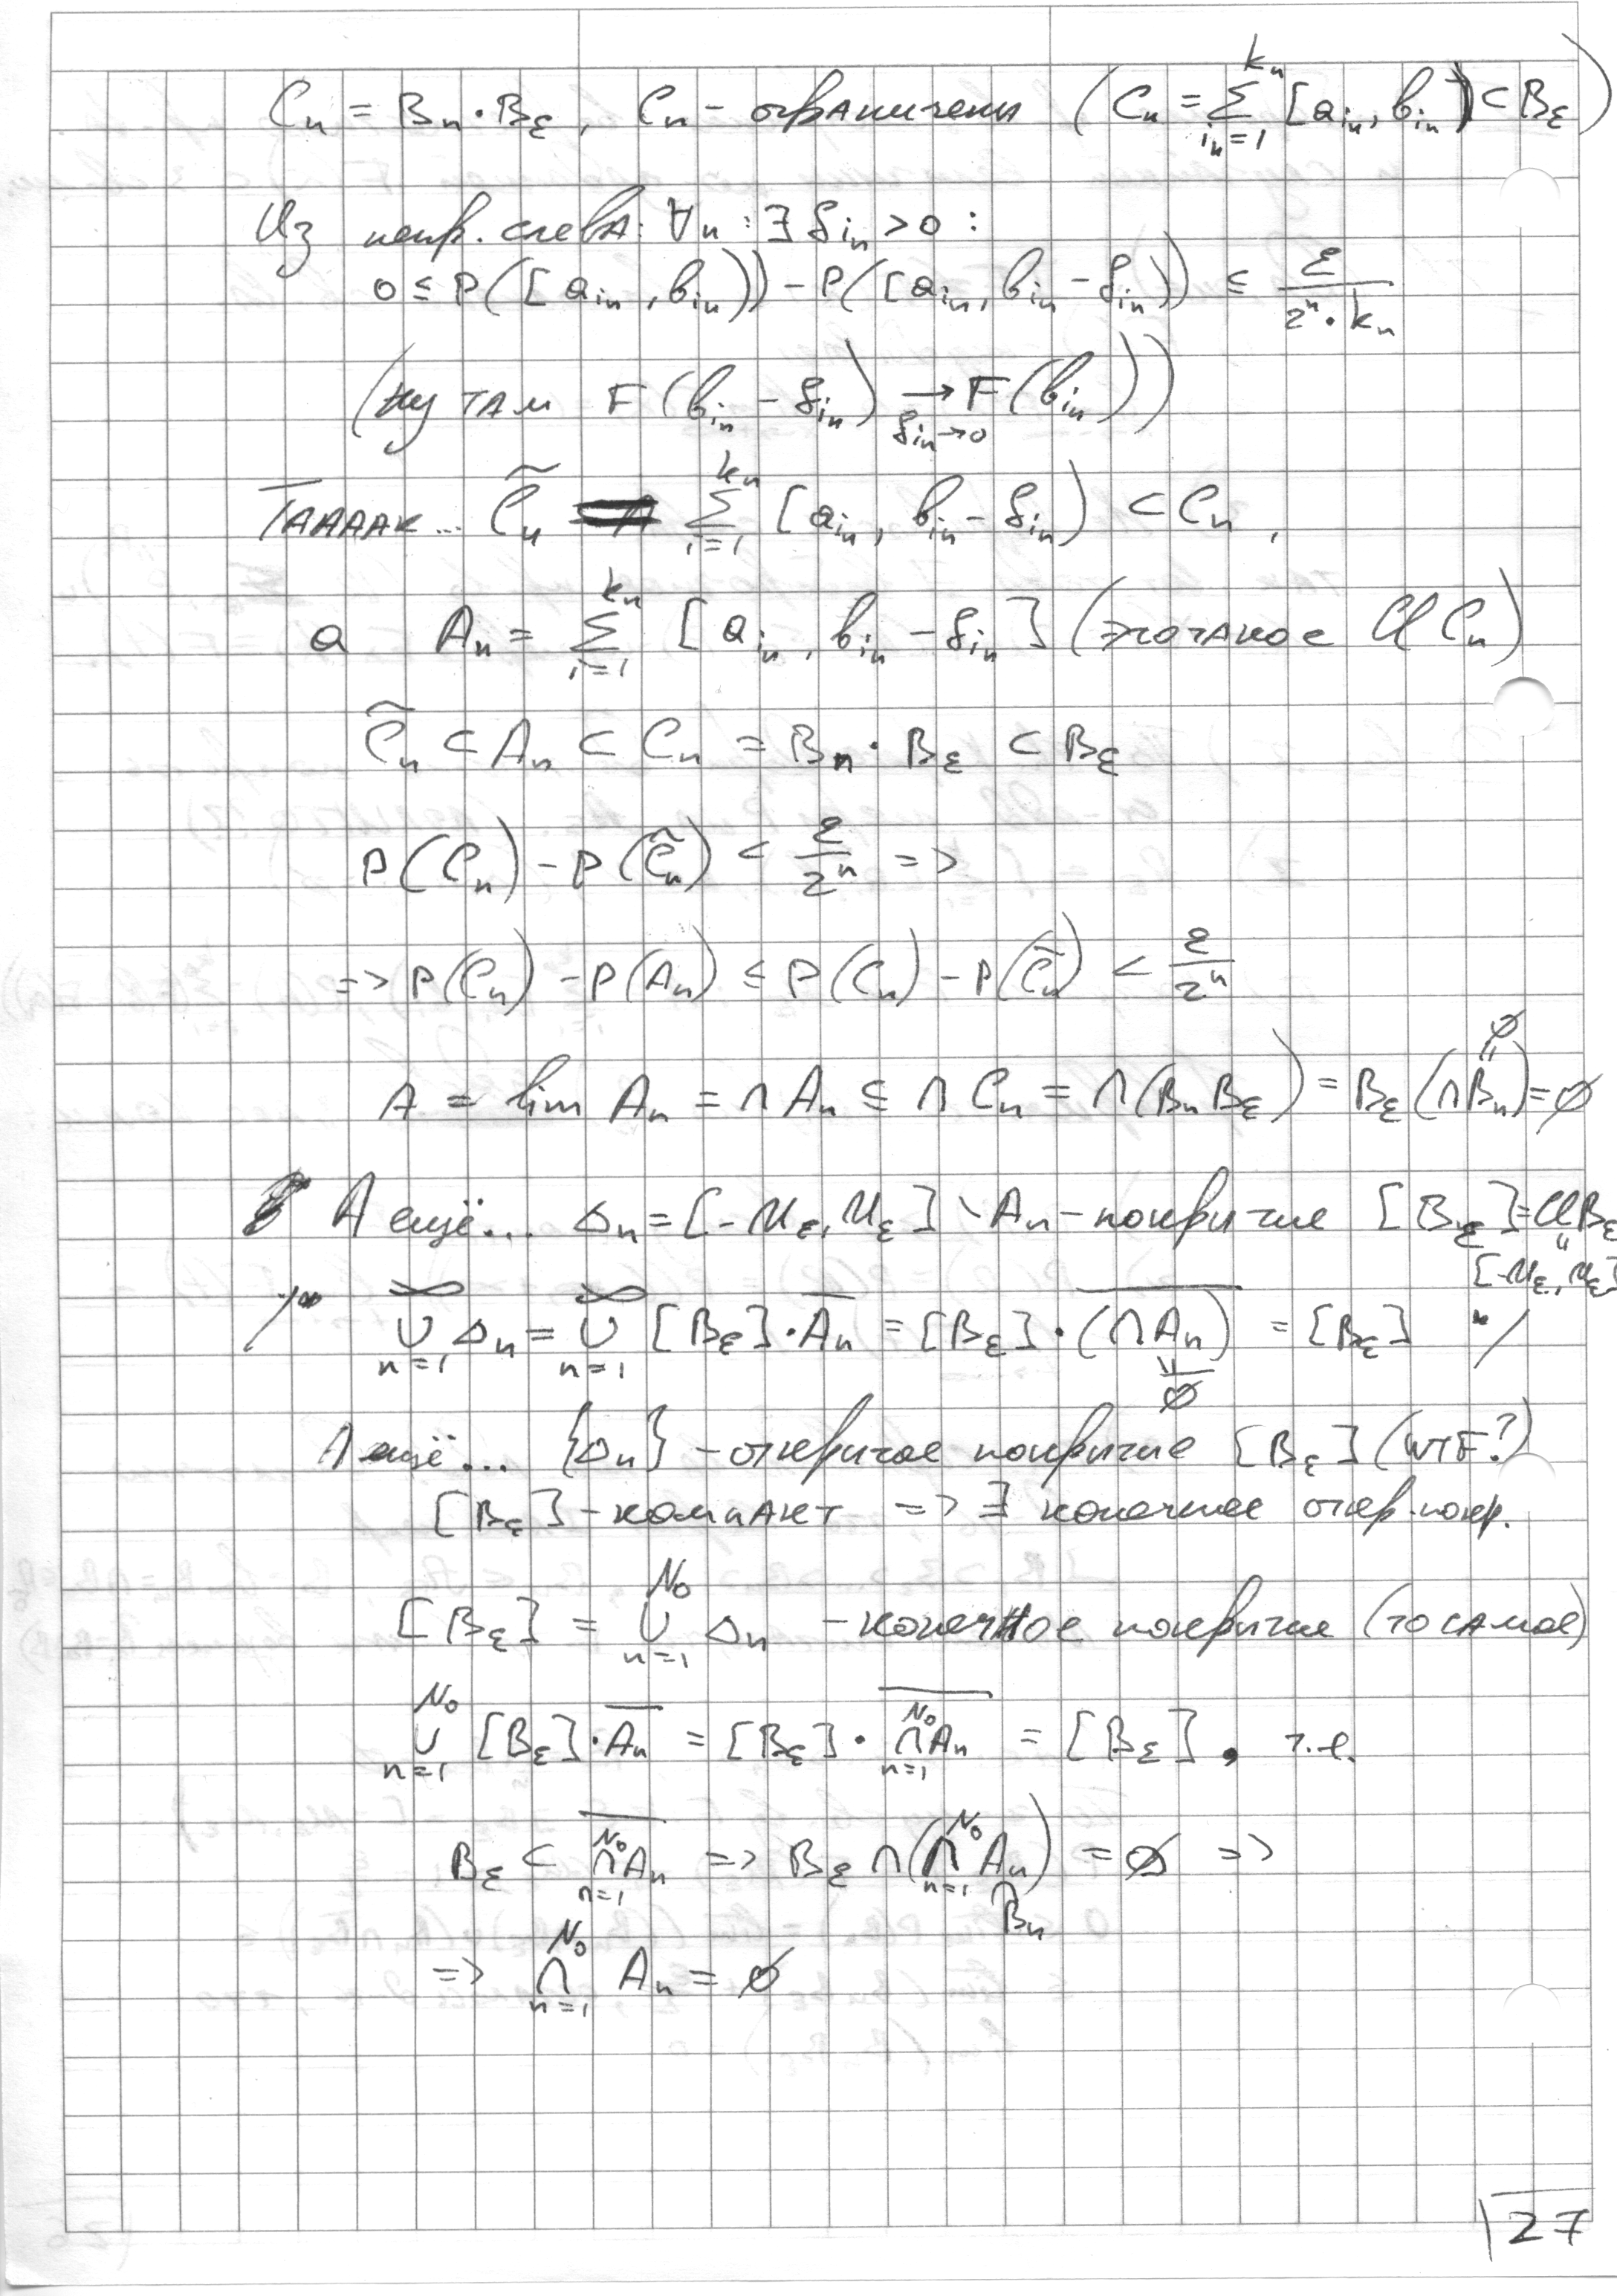 Cₙ = Bₙ·B_ε, Cₙ - ограничены (Cₙ = ∑_{iₙ=1}^{kₙ} [a_{iₙ}, b_{iₙ}) ⊂ B_ε)
Из непр. слева: ∀n : ∃ δ_{iₙ} > 0 :
0 ≤ P([a_{iₙ}, b_{iₙ})) - P([a_{iₙ}, b_{iₙ} - δ_{iₙ})) ≤ ε/(2ⁿ·kₙ)
(ну там F(b_{iₙ} - δ_{iₙ}) →_{δ_{iₙ}→0} F(b_{iₙ}))
Таааак... C̃ₙ = ∑_{i=1}^{kₙ} [a_{iₙ}, b_{iₙ} - δ_{iₙ}) ⊂ Cₙ,
а Aₙ = ∑_{i=1}^{kₙ} [a_{iₙ}, b_{iₙ} - δ_{iₙ}] (это такое Cl Cₙ)
C̃ₙ ⊂ Aₙ ⊂ Cₙ = Bₙ·B_ε ⊂ B_ε
P(Cₙ) - P(C̃ₙ) < ε/2ⁿ =>
=> P(Cₙ) - P(Aₙ) ≤ P(Cₙ) - P(C̃ₙ) < ε/2ⁿ
A = lim Aₙ = ∩Aₙ ⊆ ∩Cₙ = ∩(BₙB_ε) = B_ε(∩Bₙ) = ∅
∅
А ещё... Δₙ = [-M_ε, M_ε] \ Aₙ - покрытие [B_ε] = Cl B_ε
[-M_ε, M_ε]
/* ∪_{n=1}^{∞} Δₙ = ∪_{n=1}^{∞} [B_ε]·A̅ₙ = [B_ε]·\overline{(∩Aₙ)} = [B_ε] */
∅
А ещё... {Δₙ} - открытое покрытие [B_ε] (WTF?)
[B_ε] - компакт => ∃ конечное откр. покр.
[B_ε] = ∪_{n=1}^{N₀} Δₙ - конечное покрытие (то самое)
∪_{n=1}^{N₀} [B_ε]·A̅ₙ = [B_ε]·\overline{∩_{n=1}^{N₀} Aₙ} = [B_ε], т.е.
B_ε ⊂ \overline{∩_{n=1}^{N₀} Aₙ} => B_ε ∩ (∩_{n=1}^{N₀} Aₙ) = ∅ =>
∩
Bₙ
=> ∩_{n=1}^{N₀} Aₙ = ∅
27